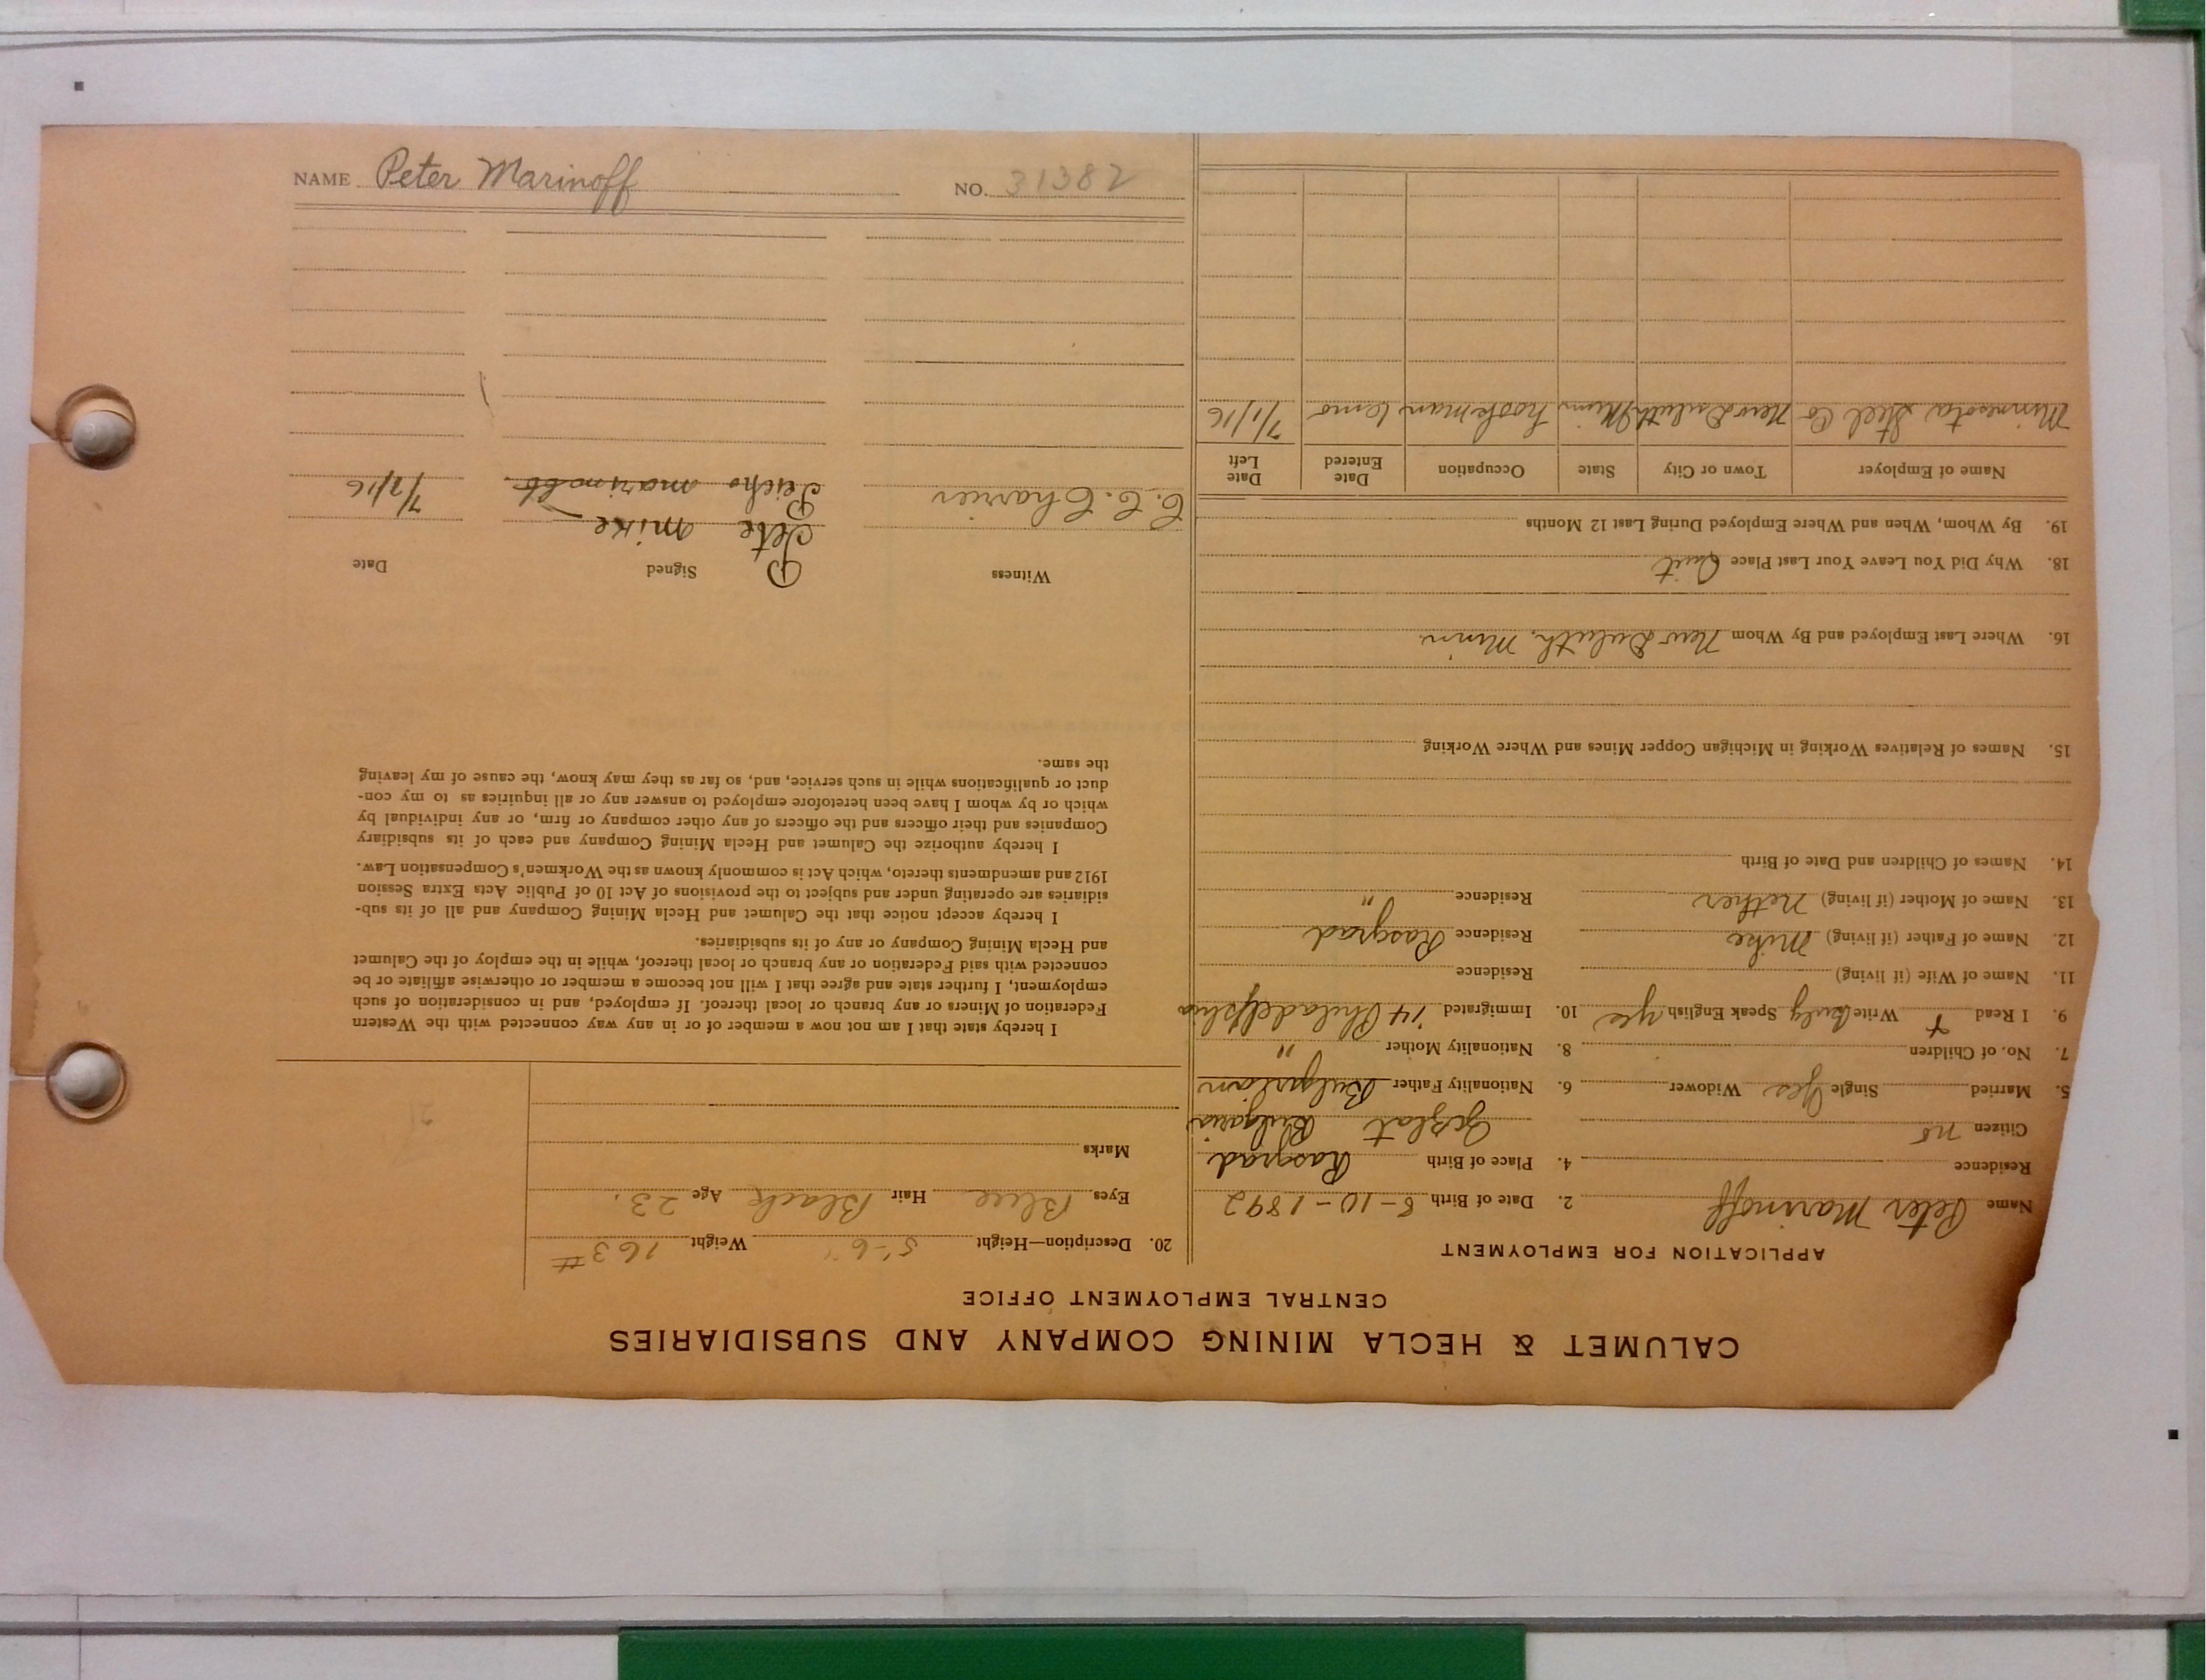 NAME Peter Marinoff NO. 31382
CALUMET & HECLA MINING COMPANY AND SUBSIDIARIES
CENTRAL EMPLOYMENT OFFICE
APPLICATION FOR EMPLOYMENT
Name Peter Marinoff 2. Date of Birth 8-10-1892
Residence 4. Place of Birth Rasgrad
Citizen no Bulgaria
5. Married Single Yes Widower 6. Nationality Father Bulgarian
7. No. of Children 8. Nationality Mother "
9. I Read + Write Bulg Speak English yes 10. Immigrated '14 Philadelphia
11. Name of Wife (if living) Residence
12. Name of Father (if living) Mike Residence Rasgrad
13. Name of Mother (if living) Nether Residence "
14. Names of Children and Date of Birth
15. Names of Relatives Working in Michigan Copper Mines and Where Working
16. Where Last Employed and By Whom New Duluth, Minn
18. Why Did You Leave Your Last Place Quit
19. By Whom, When and Where Employed During Last 12 Months
Name of Employer Town or City State Occupation Date Entered Date Left
Minnesota Steel Co New Duluth Minn 7/1/16
20. Description—Height 5'-6" Weight 163#
Eyes Blue Hair Black Age 23.
Marks
I hereby state that I am not now a member of or in any way connected with the Western
Federation of Miners or any branch or local thereof. If employed, and in consideration of such
employment, I further state and agree that I will not become a member or otherwise affiliate or be
connected with said Federation or any branch or local thereof, while in the employ of the Calumet
and Hecla Mining Company or any of its subsidiaries.
I hereby accept notice that the Calumet and Hecla Mining Company and all of its sub-
sidiaries are operating under and subject to the provisions of Act 10 of Public Acts Extra Session
1912 and amendments thereto, which Act is commonly known as the Workmen's Compensation Law.
I hereby authorize the Calumet and Hecla Mining Company and each of its subsidiary
Companies and their officers and the officers of any other company or firm, or any individual by
which or by whom I have been heretofore employed to answer any or all inquiries as to my con-
duct or qualifications while in such service, and, so far as they may know, the cause of my leaving
the same.
Witness Signed Date
Pete mike
C. C. Charier Peicho marinoff 7/2/16